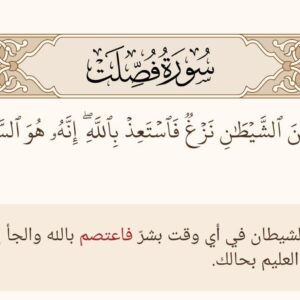 سُورَةُ فُصِّلَتْ
ٱلشَّيۡطَٰنِ نَزۡغٞ فَٱسۡتَعِذۡ بِٱللَّهِۖ إِنَّهُۥ هُوَ
لشيطان في أي وقت بشرّ فاعتصم بالله والجأ
العليم بحالك.